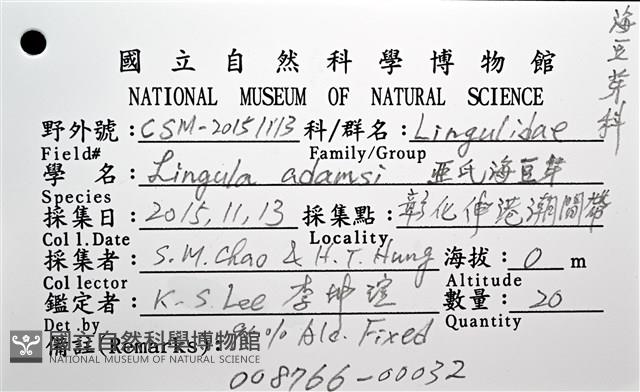 海豆芽科
國立自然科學博物館
NATIONAL MUSEUM OF NATURAL SCIENCE
野外號：CSM-20151113 科/群名：Lingulidae
Field# Family/Group
學名：Lingula adamsi 亞氏海豆芽
Species
採集日：2015,11,13 採集點：彰化伸港潮間帶
Coll.Date Locality
採集者：S.M.Chao & H.T.Hung 海拔：0 m
Collector Altitude
鑑定者：K-S.Lee 李坤瑄 數量：20
Det.by Quantity
備註(Remarks)：% Alc. Fixed
國立自然科學博物館
NATIONAL MUSEUM OF NATURAL SCIENCE
008766-00032